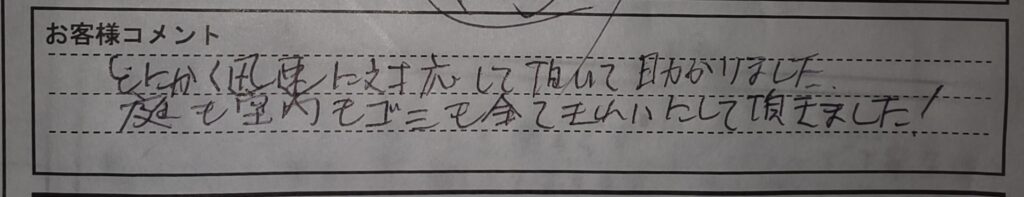 お客様コメント
とにかく迅速に対応して頂いて助かりました。
庭も室内もゴミも全てきれいにして頂きました!